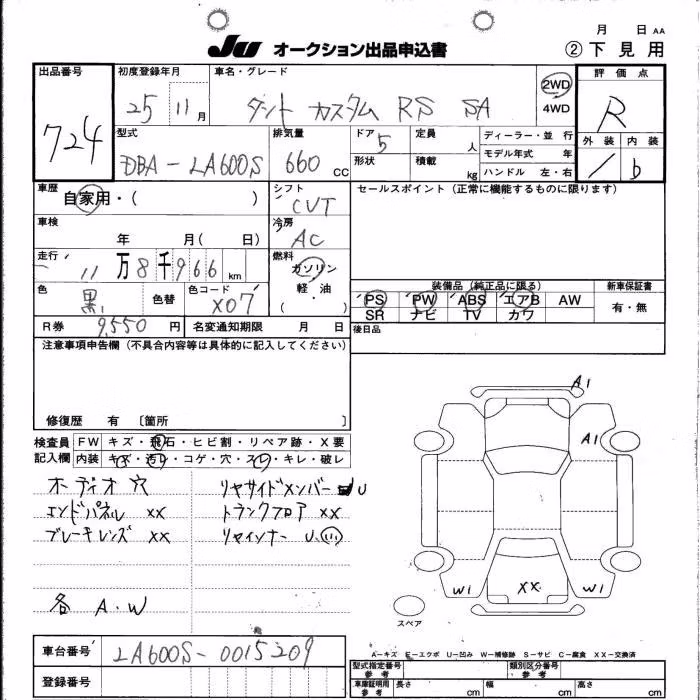 月 日 AA
JU オークション出品申込書 ②下見用
出品番号 初度登録年月 車名・グレード 2WD 4WD 評価点
724 25 11月 タント カスタム RS SA R
型式 排気量 ドア 定員 人 ディーラー・並行 外装 内装
DBA-LA600S 660cc 5 形状 積載 kg モデル年式 年 b
ハンドル 左・右
車歴 シフト セールスポイント(正常に機能するものに限ります)
自家用・( ) CVT
車検 冷房
年 月( 日) AC
走行 燃料
11万8千966km ガソリン
色 色替 色コード 軽・油 装備品(純正品に限る) 新車保証書
黒 X07 ( ) PS PW ABS エアB AW 有・無
SR ナビ TV カワ
R券 9,550円 名変通知期限 月 日 後日品
注意事項申告欄(不具合内容等は具体的に記入してください)
修復歴 有 〔箇所 〕
検査員 FW キズ・飛石・ヒビ割・リペア跡・X要
記入欄 内装 キズ・汚れ・コゲ・穴・スレ・キレ・破レ
オーディオ穴 リヤサイドメンバー U
エンドパネル XX トランクフロア XX
ブレーキレンズ XX リヤインナー U
各 A.W
A1
A1
W1 XX W1
スペア
A-キズ E-エクボ U-凹み W-補修跡 S-サビ C-腐食 XX-交換済
車台番号 LA600S-0015209
登録番号
型式指定番号 参考 類別区分番号 参考
車庫証明用 参考 長さ cm 幅 cm 高さ cm